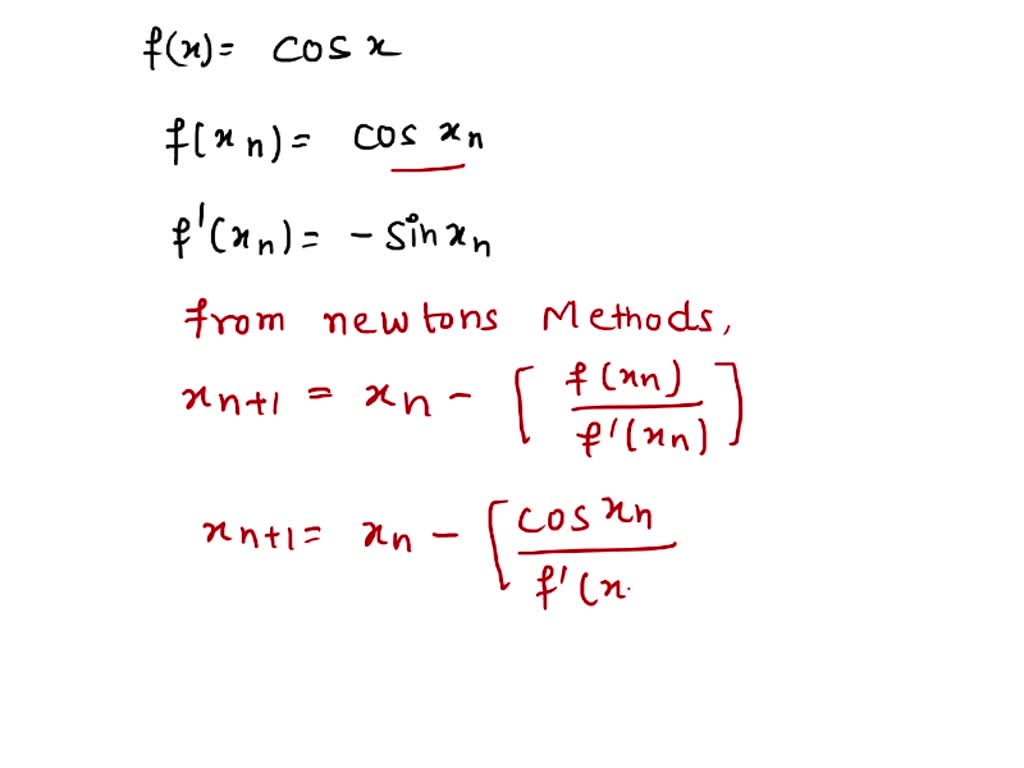 f(x)= cos x
f(xn)= cos xn
f'(xn)= - sin xn
from newtons Methods,
xn+1 = xn - [ f(xn) / f'(xn) ]
xn+1= xn - [ cos xn / f'(x